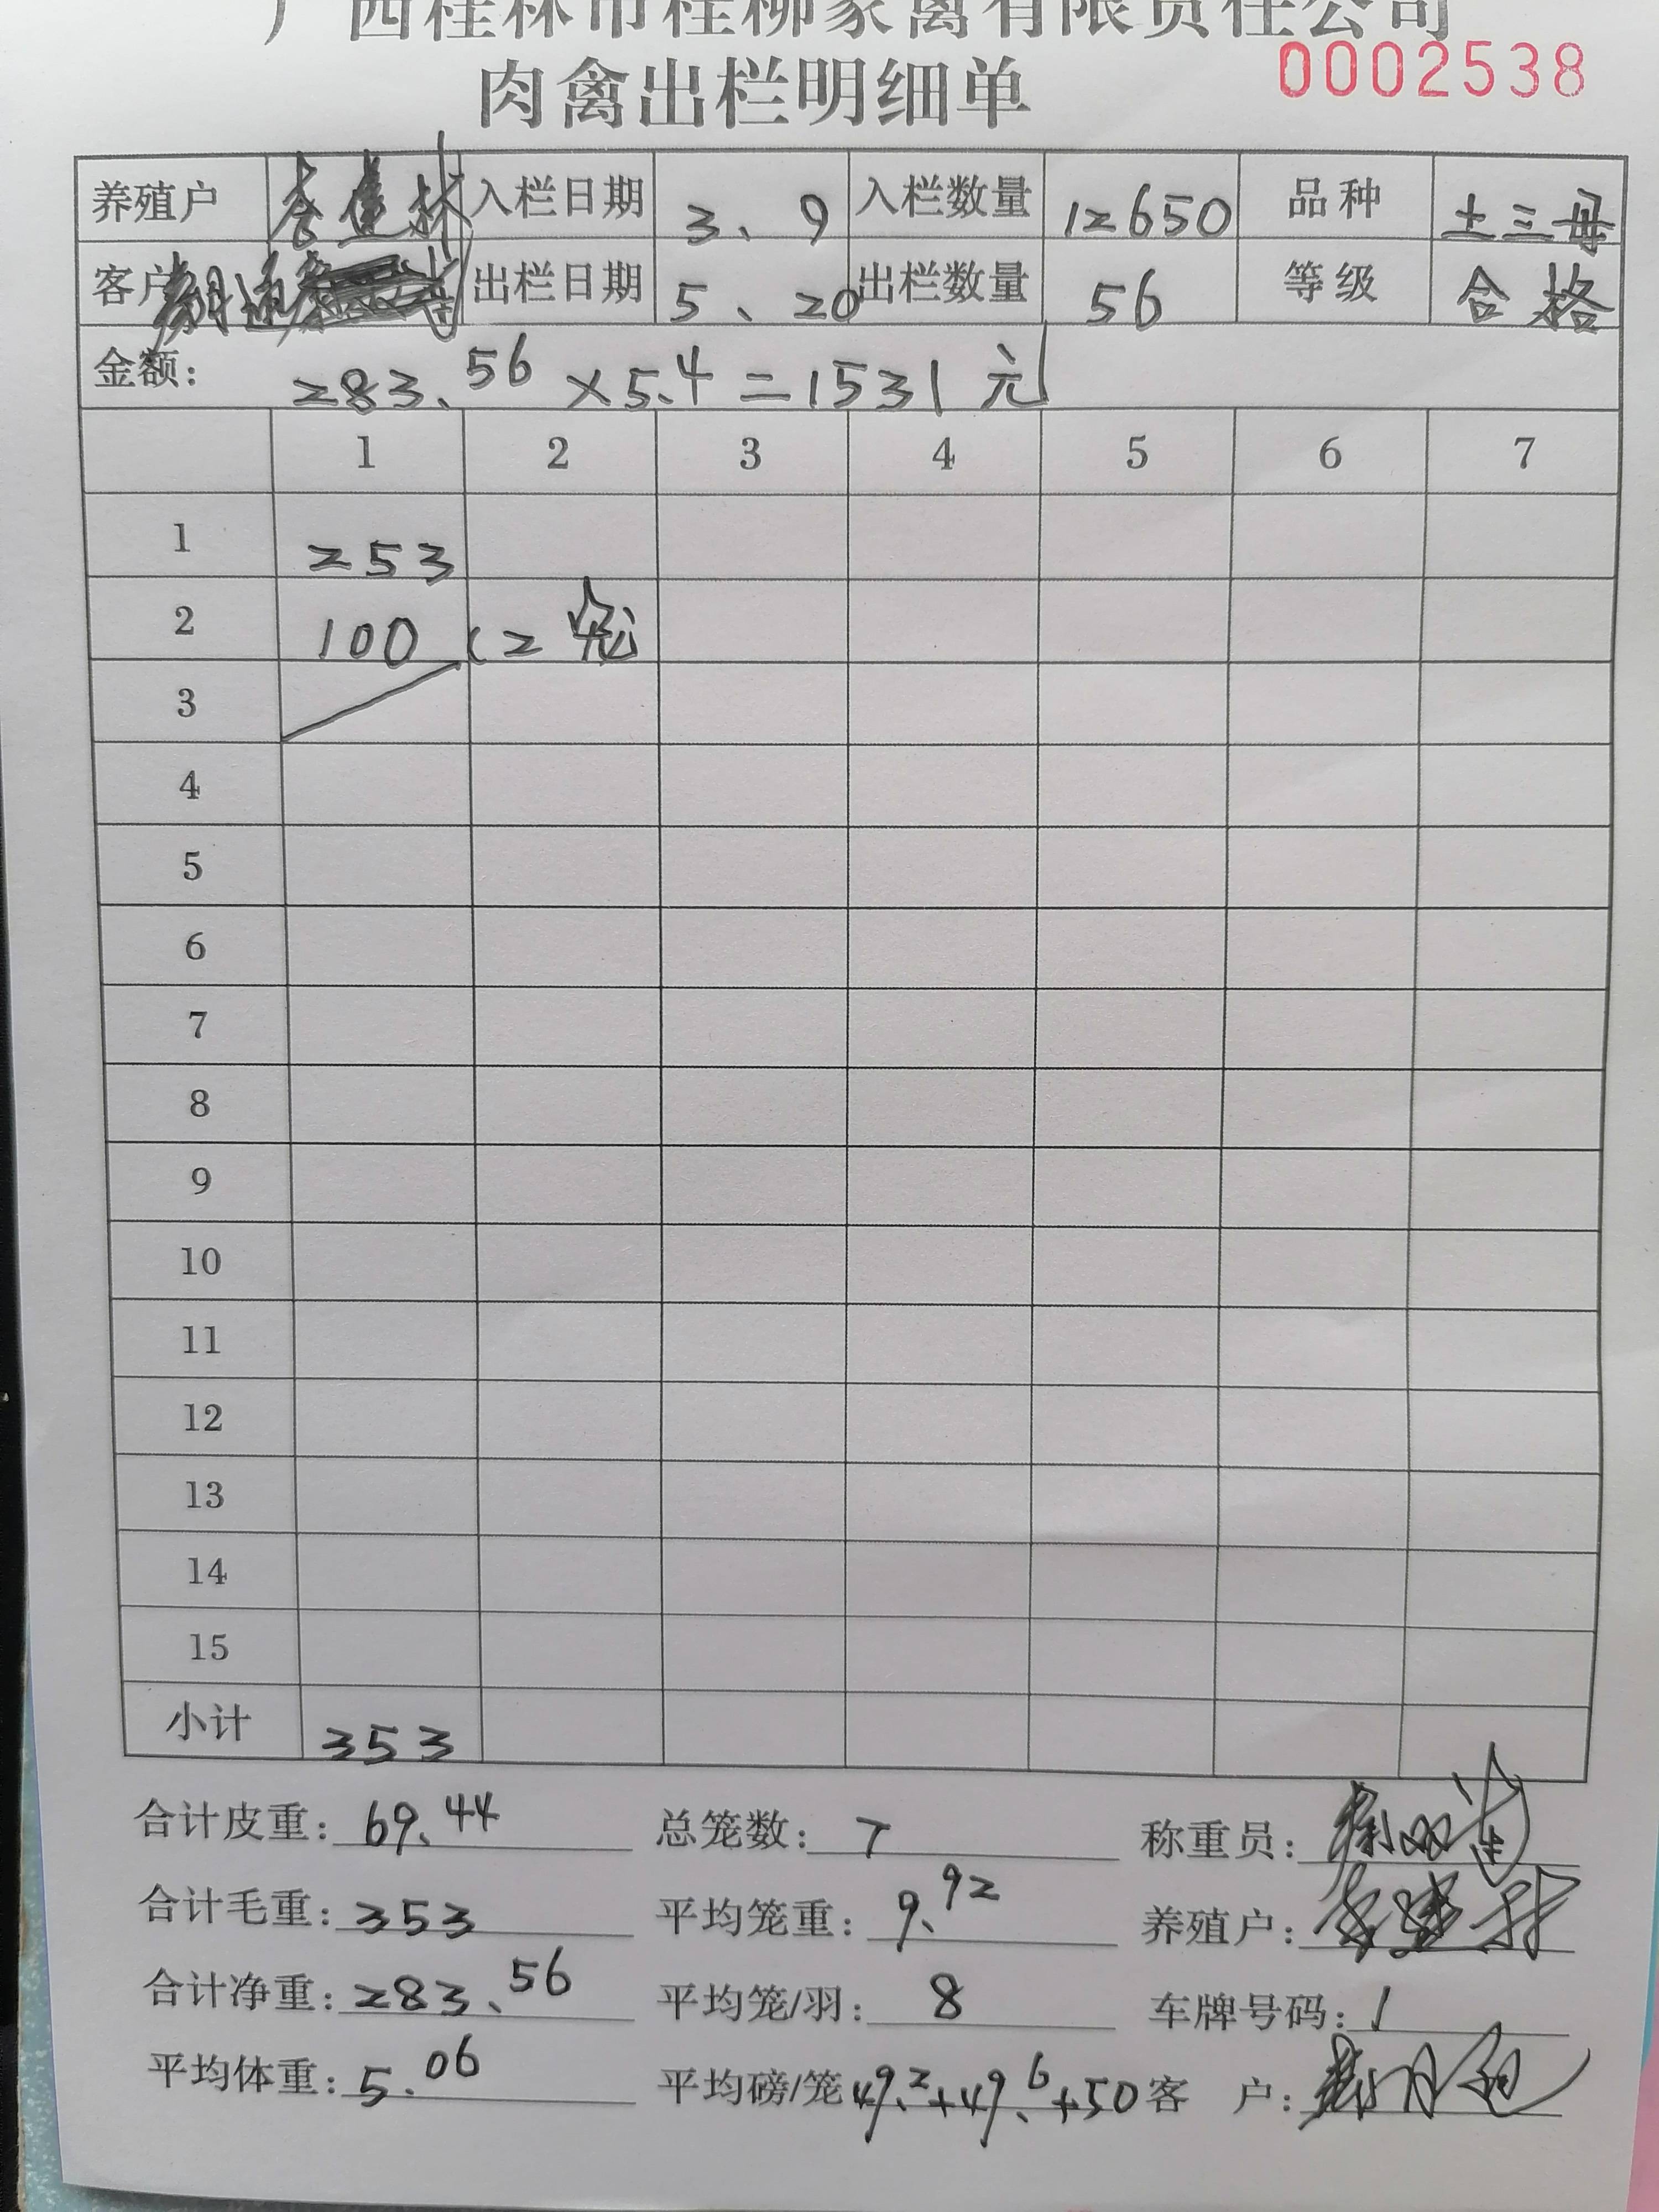 广西桂林市桂柳家禽有限责任公司
肉禽出栏明细单 0002538
养殖户 李建林 入栏日期 3、9 入栏数量 12650 品种 土三母
客户 入栏日期 出栏日期 5、20 出栏数量 56 等级 合格
金额: 283.56×5.4=1531元
1 2 3 4 5 6 7
1 253
2 100 (2笼
3
4
5
6
7
8
9
10
11
12
13
14
15
小计 353
合计皮重: 69.44 总笼数: 7 称重员:
合计毛重: 353 平均笼重: 9.92 养殖户: 李建林
合计净重: 283.56 平均笼/羽: 8 车牌号码: 1
平均体重: 5.06 平均磅/笼 49.2+49.6+50 客 户: